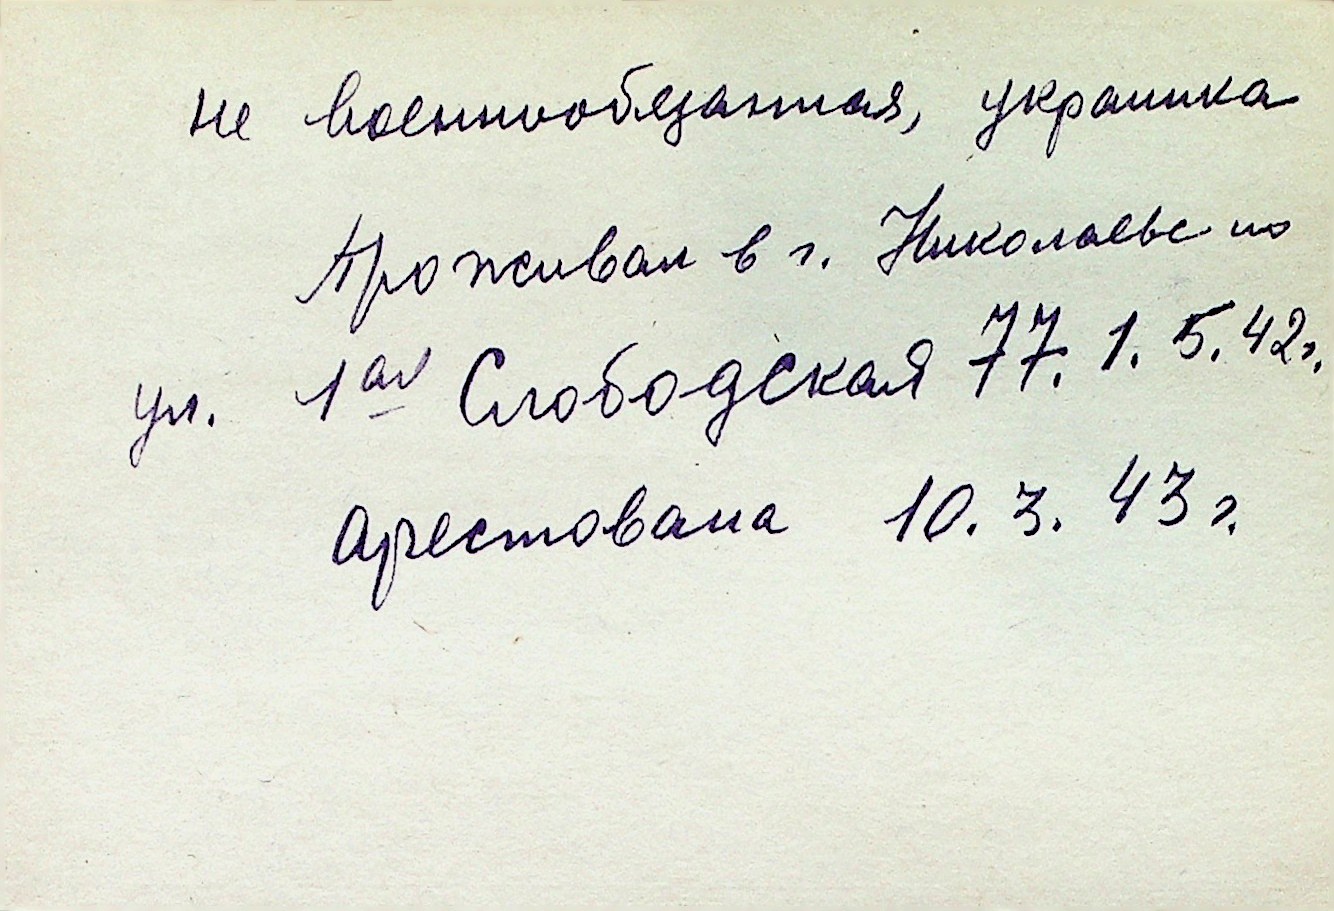 не военнообязанная, украинка
Проживал в г. Николаеве по
ул. 1ая Слободская 77. 1. 5. 42 г.
арестована 10. 3. 43 г.